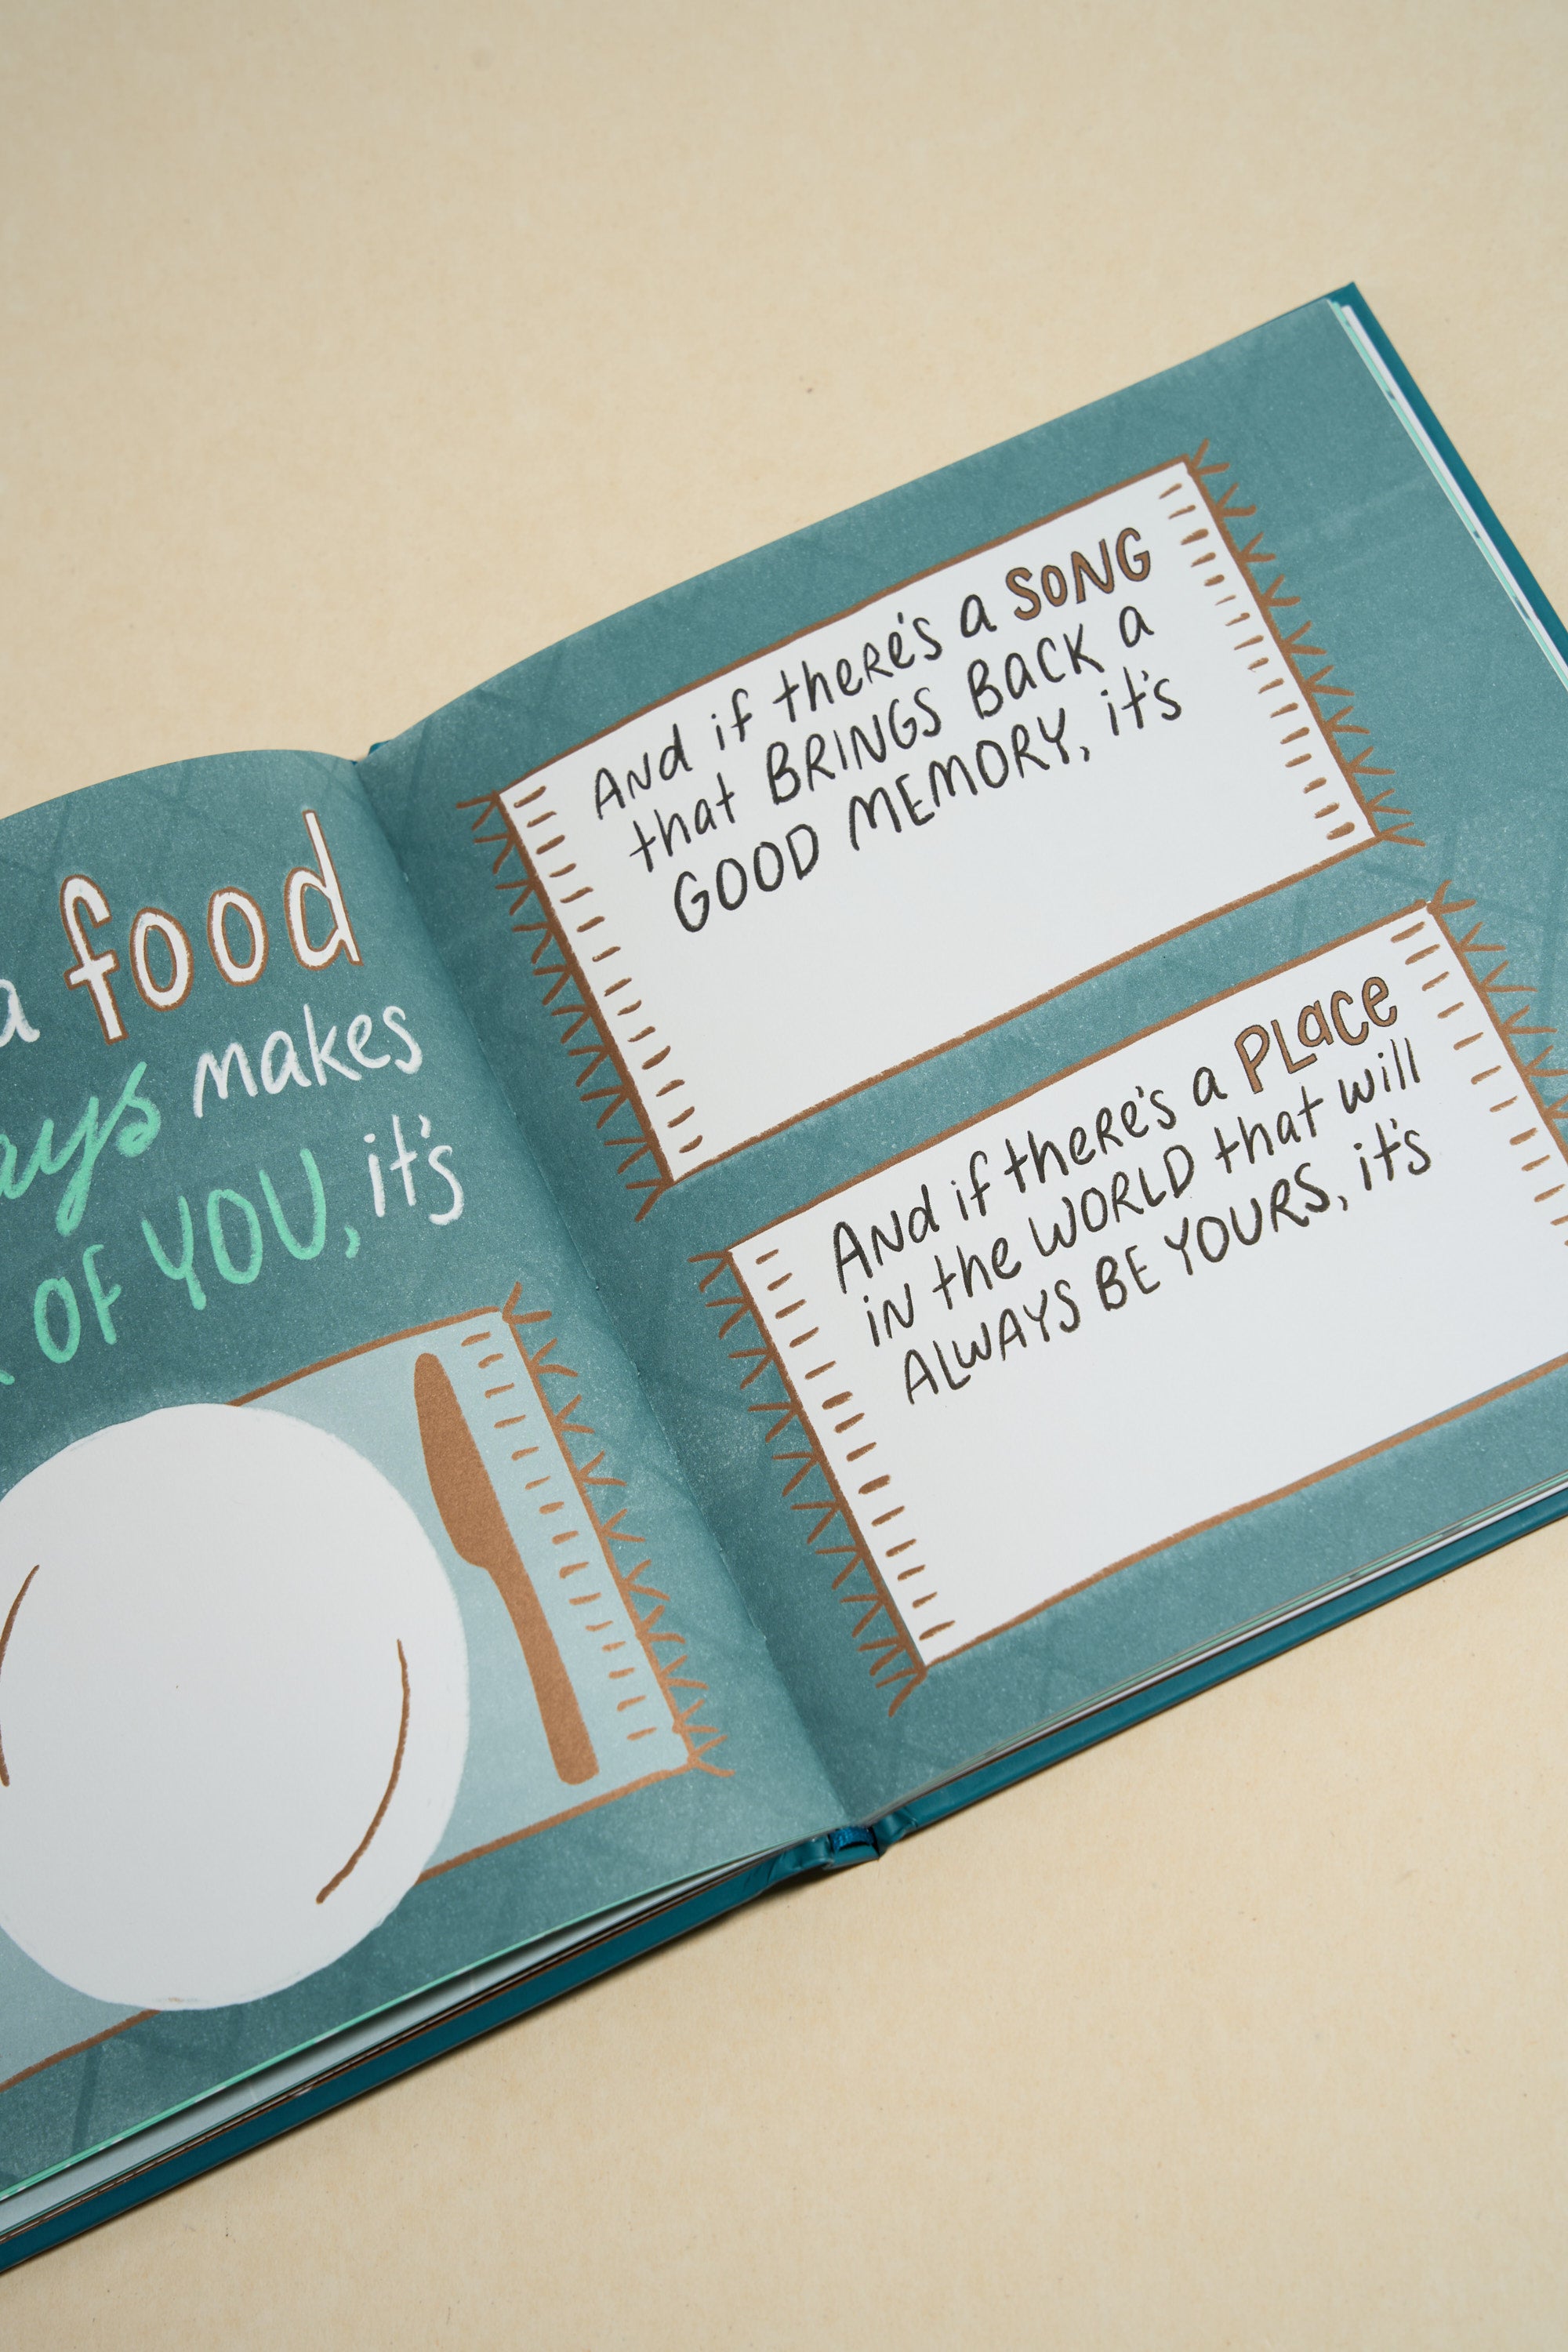 a food
makes
OF YOU, it's
And if there's a SONG
that BRINGS BACK a
GOOD MEMORY, it's
And if there's a PLACE
in the WORLD that will
ALWAYS BE YOURS, it's